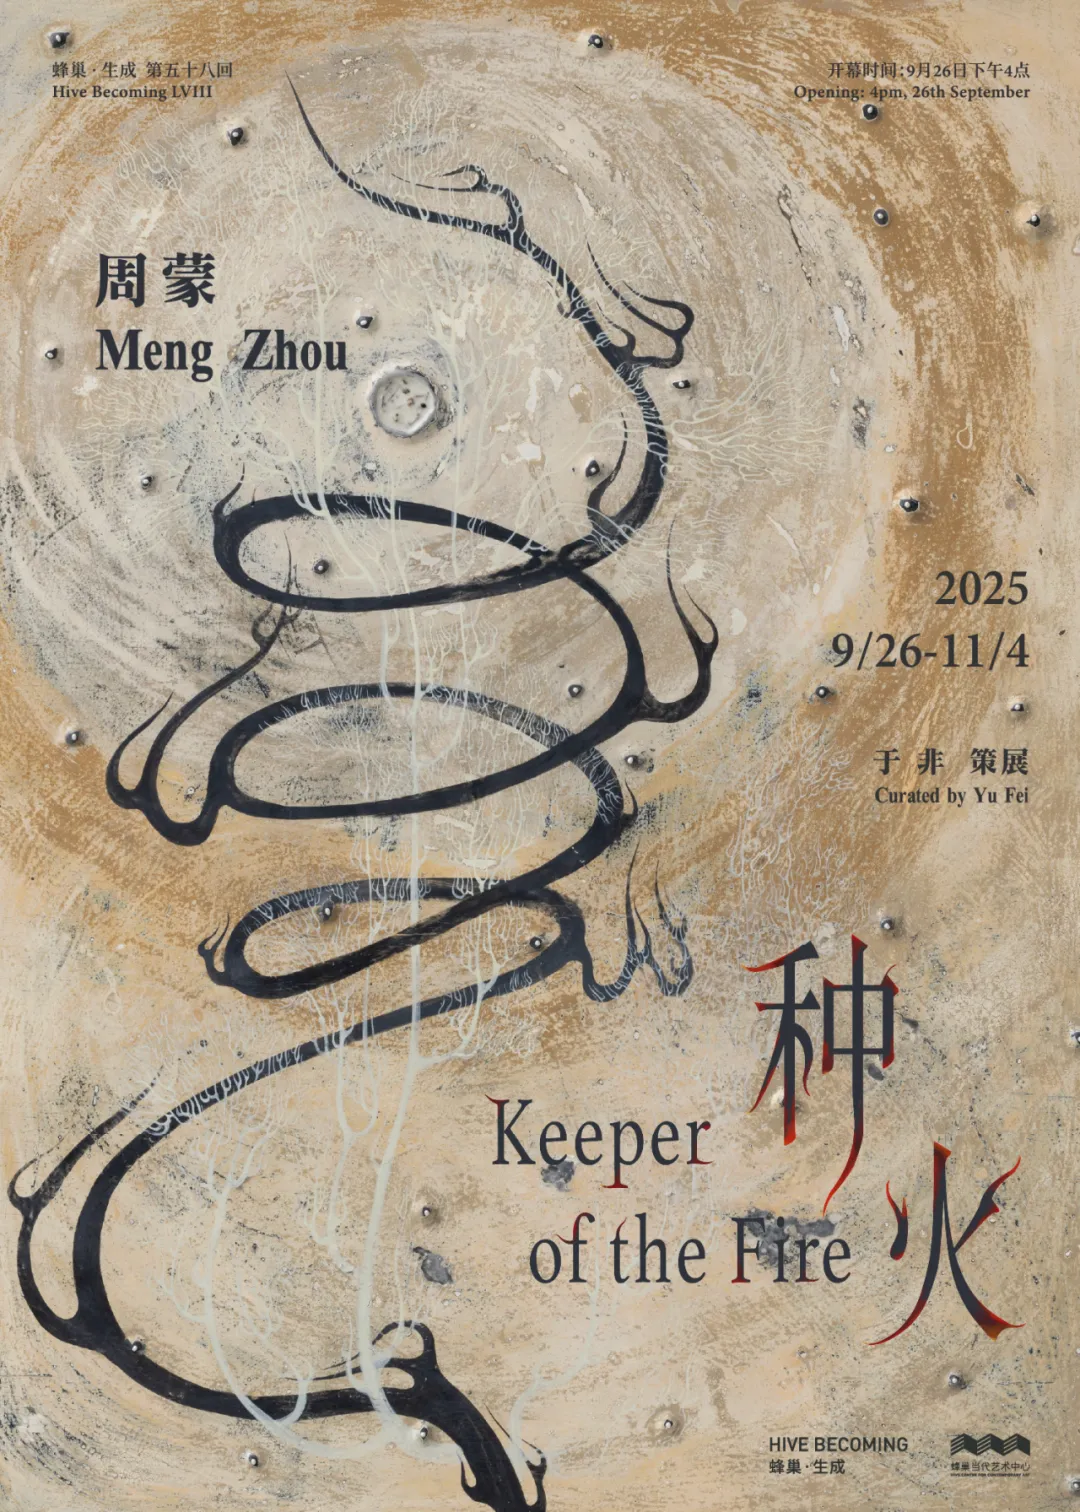 蜂巢·生成 第五十八回
Hive Becoming LVIII
开幕时间:9月26日下午4点
Opening: 4pm, 26th September
周蒙
Meng Zhou
2025
9/26-11/4
于非 策展
Curated by Yu Fei
种火
Keeper
of the Fire
HIVE BECOMING
蜂巢·生成
蜂巢当代艺术中心
HIVE CENTER FOR CONTEMPORARY ART